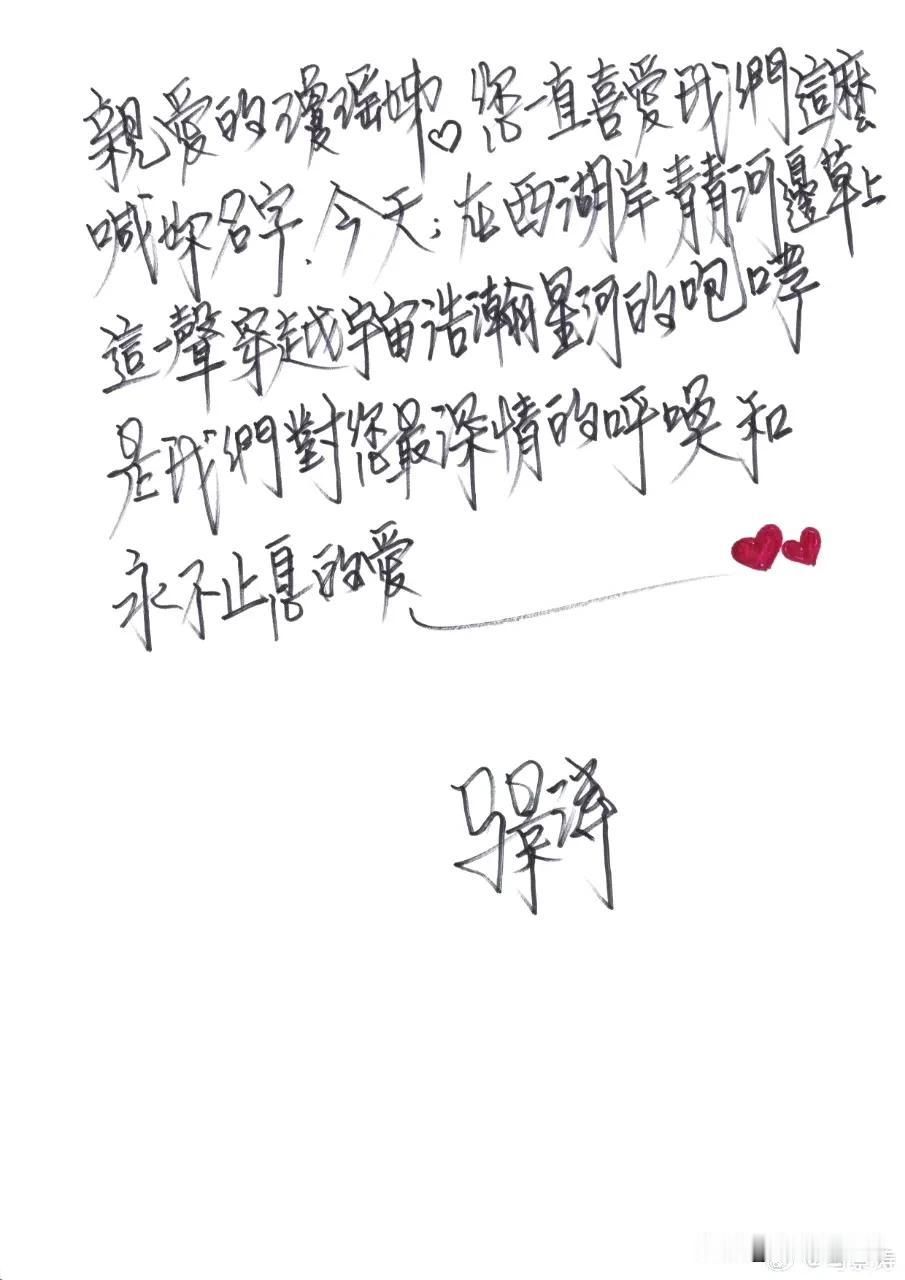 親愛的瓊瑤姊♡您一直喜愛我們這麼
喊妳名字.今天;在西湖岸青青河邊草上
這一聲穿越宇宙浩瀚星河的咆哮
是我們對您最深情的呼喚和
永不止息的愛
馬景涛